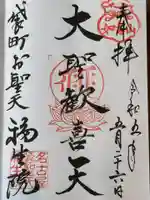 奉拝
令和五年
五月二十六日
大聖歓喜天
袋町お聖天
福生院